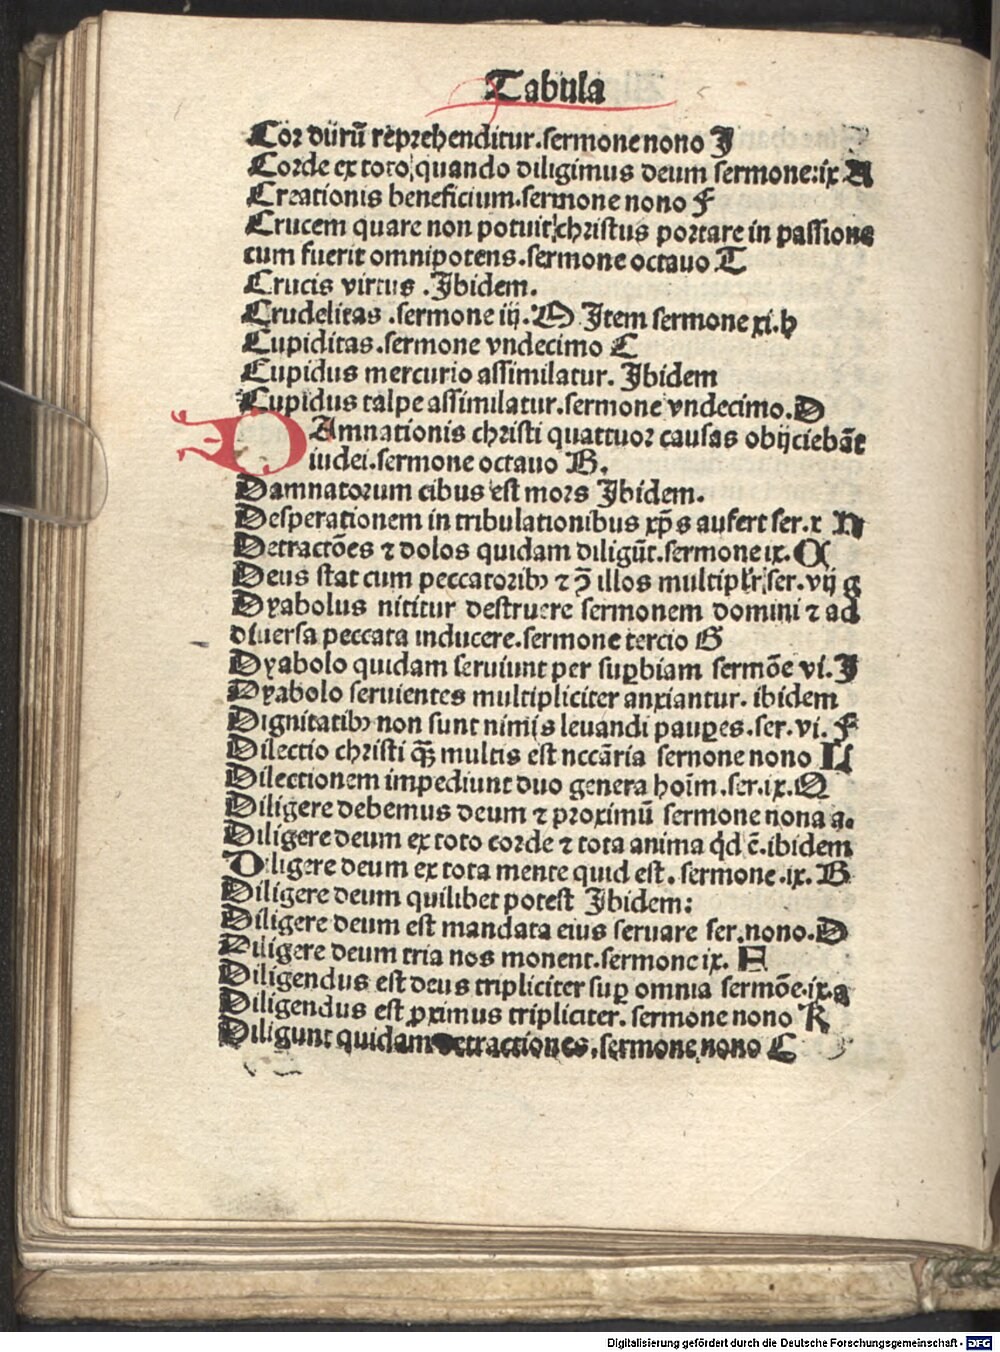 Tabula
Cor durū reprehenditur.sermone nono J
Corde ex toto quando diligimus deum sermone:ix A
Creationis beneficium.sermone nono F
Crucem quare non potuit christus portare in passione
cum fuerit omnipotens.sermone octauo T
Crucis virtus .Jbidem.
Crudelitas .sermone iij. O Jtem sermone xi.h
Cupiditas.sermone vndecimo C
Cupidus mercurio assimilatur. Jbidem
Cupidus talpe assimilatur.sermone vndecimo.D
DAmnationis christi quattuor causas obijciebāt
iudei.sermone octauo B.
Damnatorum cibus est mors Jbidem.
Desperationem in tribulationibus xp̄s aufert ser.x N
Detractōes ⁊ dolos quidam diligūt.sermone ix.
Deus stat cum peccatoribꝫ ⁊ ꝯ̄ illos multiplr̄ ser.vij g
Dyabolus nititur destruere sermonem domini ⁊ ad
diuersa peccata inducere.sermone tercio G
Dyabolo quidam seruiunt per suꝑbiam sermōe vi.J
Dyabolo seruientes multipliciter anxiantur. ibidem
Dignitatibꝫ non sunt nimis leuandi pauꝑes.ser.vi.F
Dilectio christi qꝫ̄ multis est nccāria sernone nono L
Dilectionem impediunt duo genera hoīm.ser.ix.Q
Diligere debemus deum ⁊ proximū sermone nona a.
Diligere deum ex toto corde ⁊ tota anima qd̄ ē.ibidem
Diligere deum ex tota mente quid est. sermone .ix. B
Diligere deum quilibet potest Jbidem:
Diligere deum est mandata eius seruare ser.nono.D
Diligere deum tria nos monent.sermone ix. E
Diligendus est deus tripliciter suꝑ omnia sermōe.ix.a
Diligendus est ꝓximus tripliciter. sermone nono K
Diligunt quidam detractiones.sermone nono C
Digitalisierung gefördert durch die Deutsche Forschungsgemeinschaft - DFG